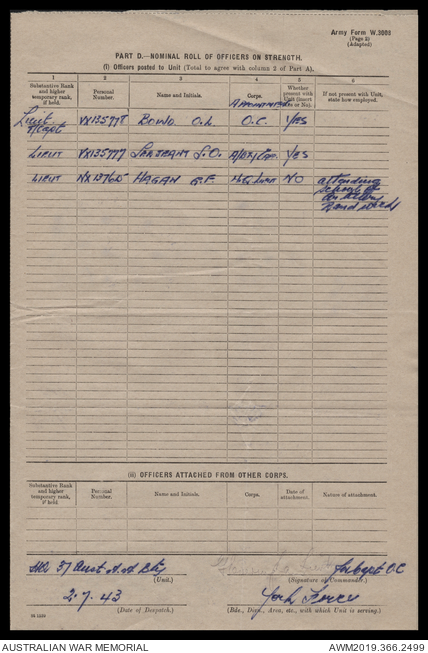 Army Form W.3008
(Page 3)
(Adapted)
PART D.—NOMINAL ROLL OF OFFICERS ON STRENGTH.
(i) Officers posted to Unit (Total to agree with column 2 of Part A).
1 2 3 4 5 6
Substantive Rank and higher temporary rank, if held. Personal Number. Name and Initials. Corps. Whether present with Unit (insert Yes or No). If not present with Unit, state how employed.
APPOINTMENT
Lieut O.C. YES
A/Capt
LIEUT VX135777 YES
LIEUT HAGAN G.F. NO attending
School of
(ii) OFFICERS ATTACHED FROM OTHER CORPS.
Substantive Rank and higher temporary rank, if held. Personal Number. Name and Initials. Corps. Date of attachment. Nature of attachment.
37 Aust A.A Bty
(Unit.) (Signature of Commander.)
2.7.43 York Force
(Date of Despatch.) (Bde., Divn., Area, etc., with which Unit is serving.)
AUSTRALIAN WAR MEMORIAL AWM2019.366.2499